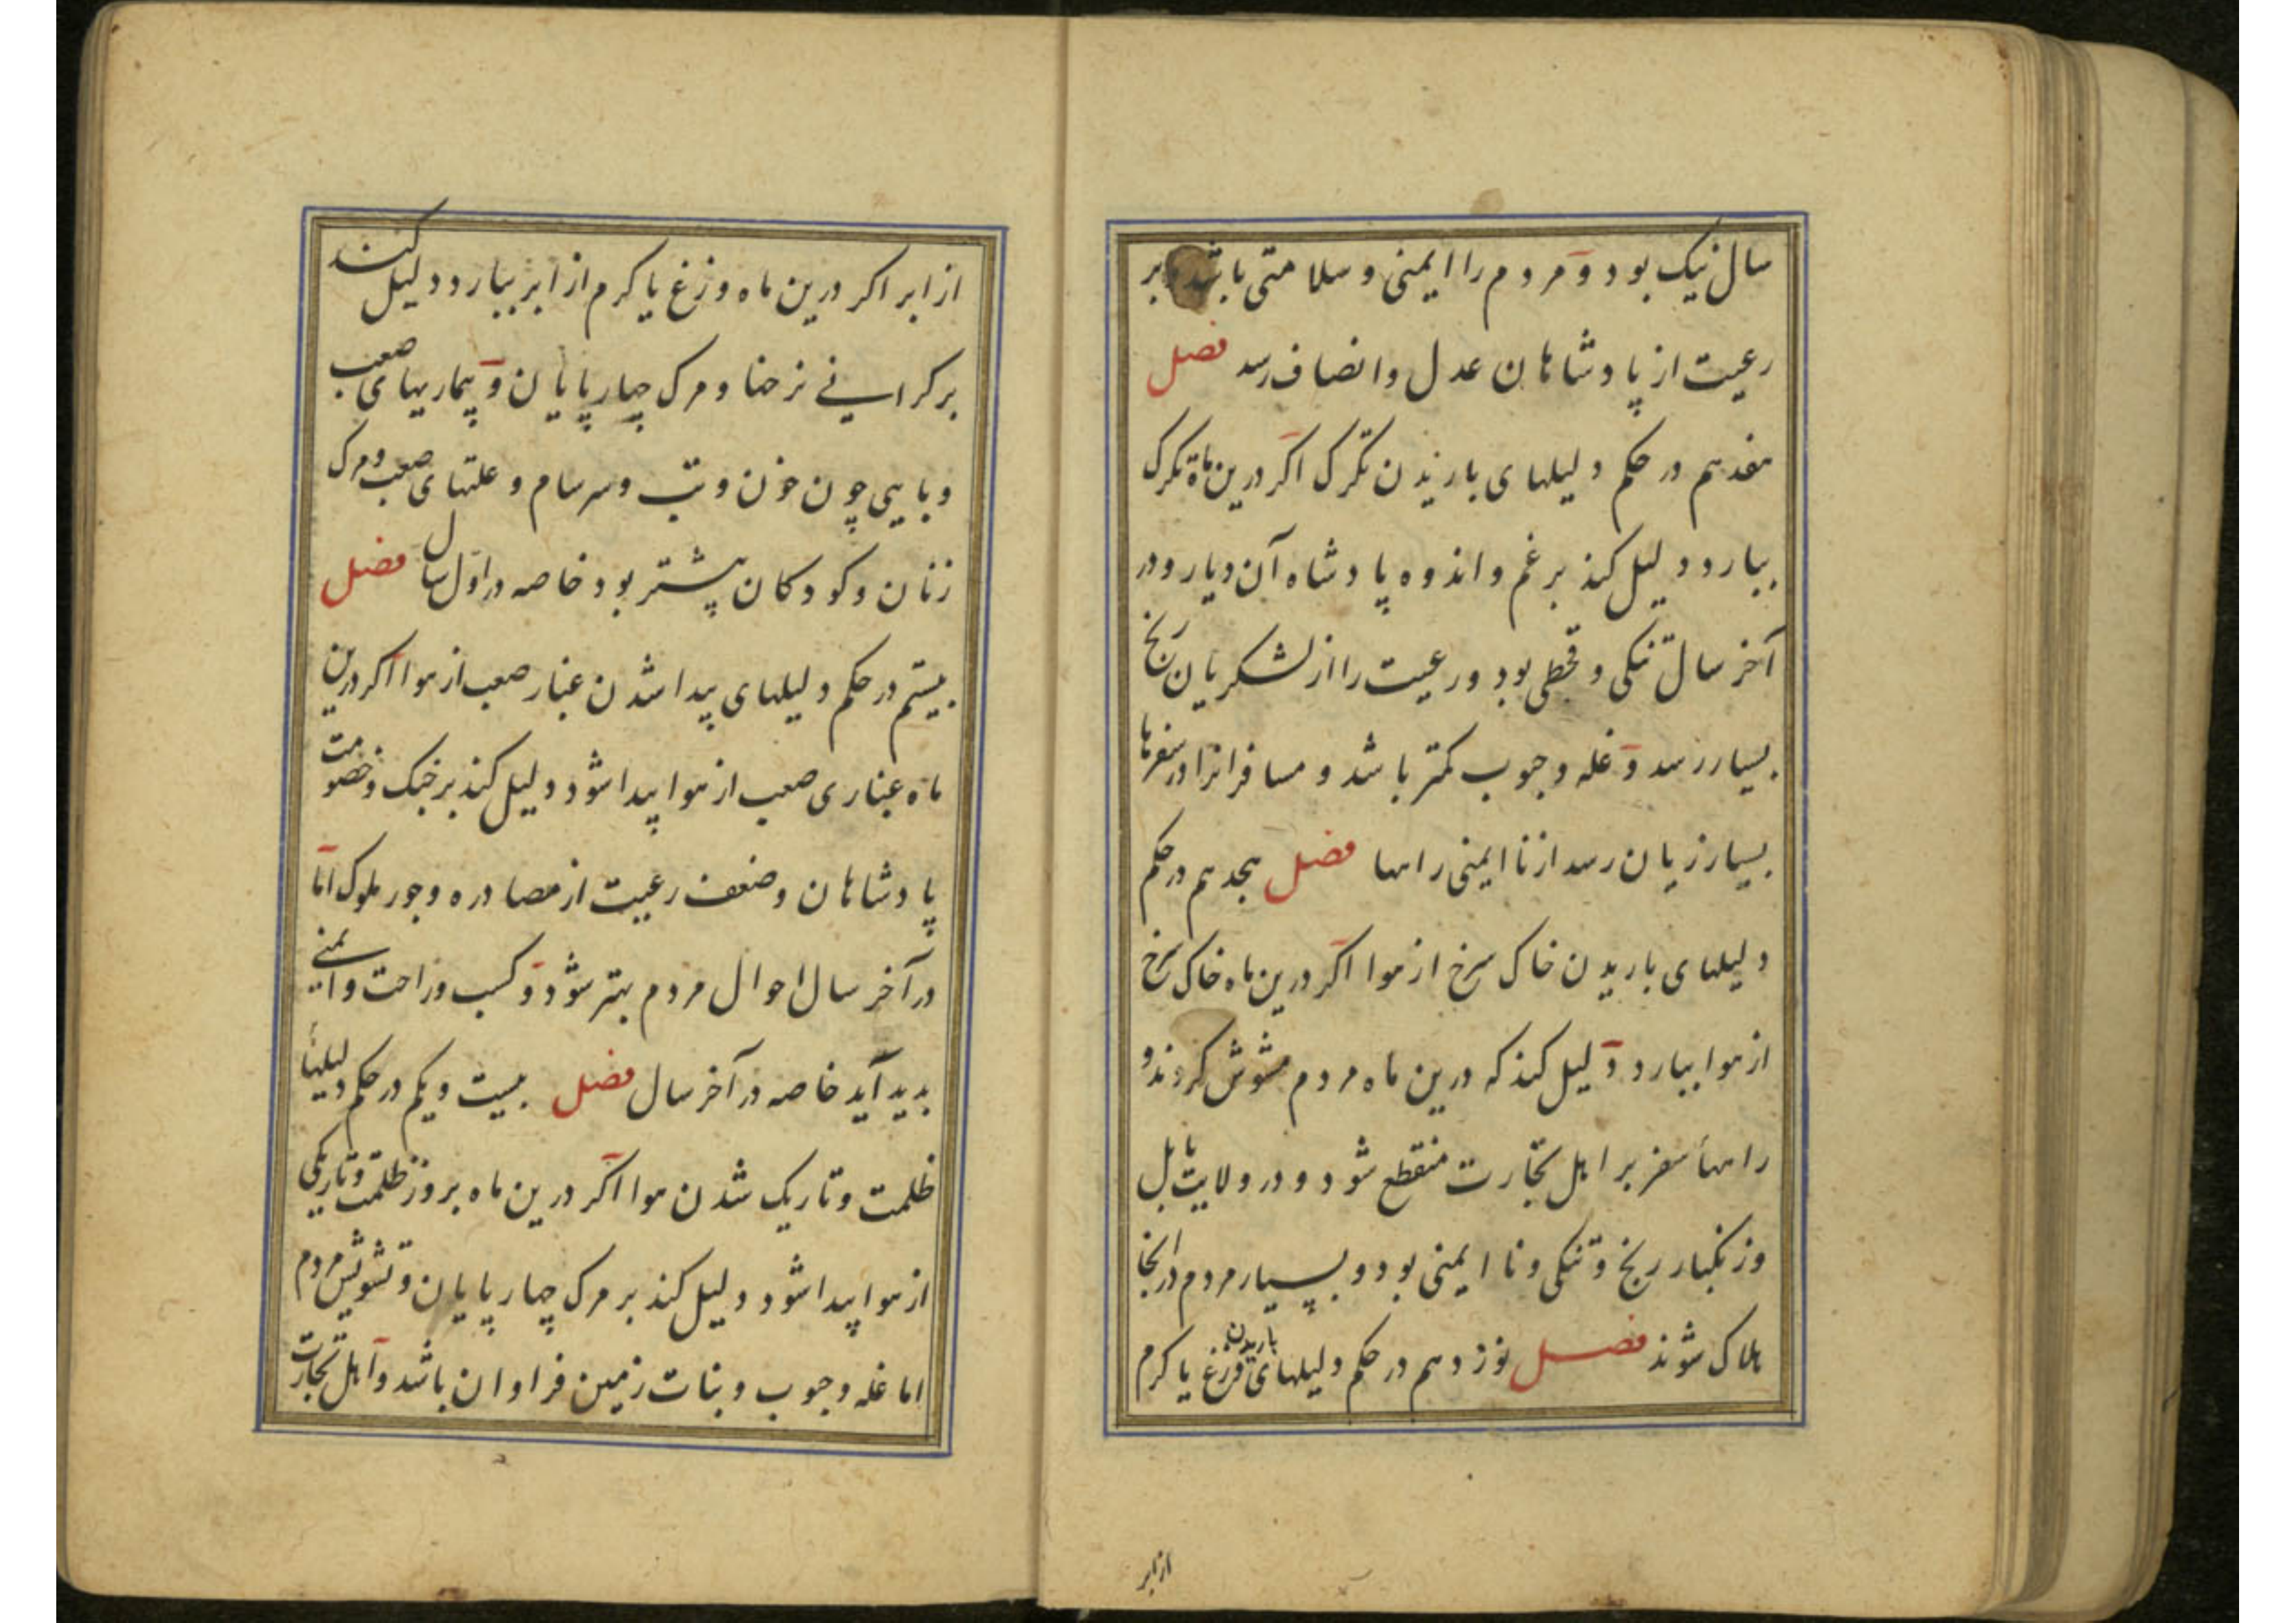 سال نیک بود و مردم را ایمنی و سلامتی باشد و بر
رعیت از پادشاهان عدل و انصاف رسد فصل
هفدهم در حکم دلیلهای باریدن تگرگ اگر درین ماه تگرگ
ببارد دلیل کند بر غم و اندوه پادشاه آن دیار و در
آخر سال تنکی و قحطی بود و رعیت را از لشکریان رنج
بسیار رسد و غله و حبوب کمتر باشد و مسافرانرا در سفرها
بسیار زیان رسد از نا ایمنی راهها فصل هجدهم در حکم
دلیلهای باریدن خاک سرخ از هوا اگر درین ماه خاک سرخ
از هوا ببارد دلیل کند که درین ماه مردم مشوش کردند و
راهها سفر بر اهل تجارت منقطع شود و در ولایت بابل
و زنکبار رنج و تنکی و نا ایمنی بود و بسیار مردم در انجا
هلاک شوند فصل نوزدهم در حکم دلیلهای باریدن وزغ یا کرم
از ابر
از ابر اکر درین ماه وزغ یا کرم از ابر ببارد دلیل کند
بر کرانی نرخها و مرک چهارپایان و بیماریهای صعب
و بایی چون خون و تب و سرسام و علتهای صعب و مرک
زنان و کودکان بیشتر بود خاصه در اول سال فصل
بیستم در حکم دلیلهای پیدا شدن غبار صعب از هوا اکر درین
ماه غباری صعب از هوا پیدا شود دلیل کند بر جنک و خصومت
پادشاهان و ضعف رعیت از مصادره و جور ملوک اما
در آخر سال احوال مردم بهتر شود و کسب و راحت و ایمنی
پدید آید خاصه در آخر سال فصل بیست و یکم در حکم دلیلهأ
ظلمت و تاریک شدن هوا اکر درین ماه بروز ظلمت و تاریکی
از هوا پیدا شود دلیل کند بر مرک چهارپایان و تشویش مردم
اما غله و حبوب و نبات زمین فراوان باشد و اهل تجارت